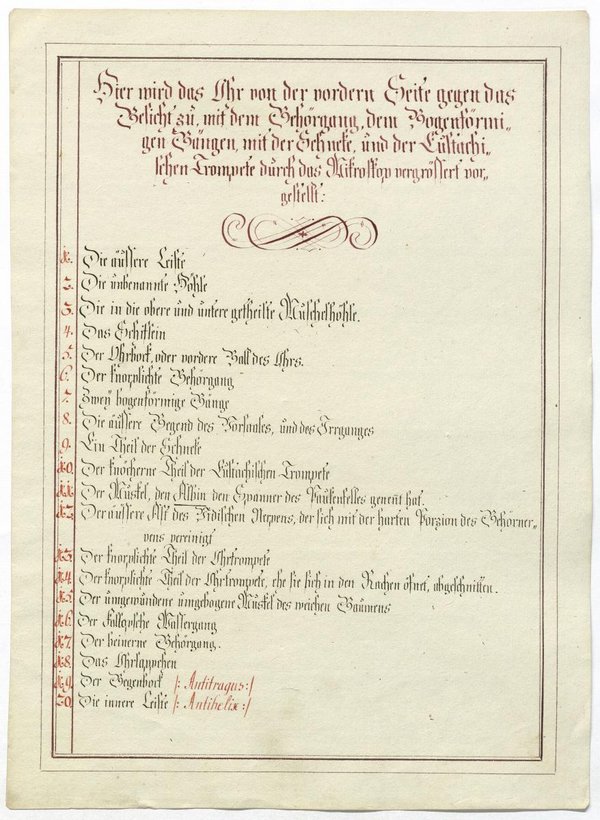 Hier wird das Ohr von der vordern Seite gegen das
Gesicht zu, mit dem Gehörgang, dem Bogenförmi-
gen Gängen, mit der Schneke, und der Eustachi-
schen Trompete durch das Mikroskop vergrössert vor-
gestellt:
1. Die äussere Leiste
2. Die unbenannte Höhle
3. Die in die obere und untere getheilte Muschelhöhle.
4. Das Schiflein
5. Der Ohrbock, oder vordere Ball des Ohrs.
6. Der knorplichte Gehörgang
7. Zwey bogenförmige Gänge
8. Die äussere Gegend des Vorsaales, und des Irrganges
9. Ein Theil der Schneke
10. Der knöcherne Theil der Eustachischen Trompete
11. Der Muskel, den Albin den Spanner des Paukenfelles genent hat.
12. Der äussere Ast des Vidischen Nervens, der sich mit der harten Porzion des Gehörner-
vens vereinigt
13. Der knorplichte Theil der Ohrtrompete
14. Der knorplichte Theil der Ohrtrompete, ehe sie sich in den Rachen öfnet, abgeschnitten.
15. Der umgewundene umgebogene Muskel des weichen Gaumens
16. Der Wassergang
17. Der beinerne Gehörgang.
18. Das Ohrläppchen
19. Der Gegenbock /: Antitragus :/
20. Die innere Leiste /: Antihelix :/